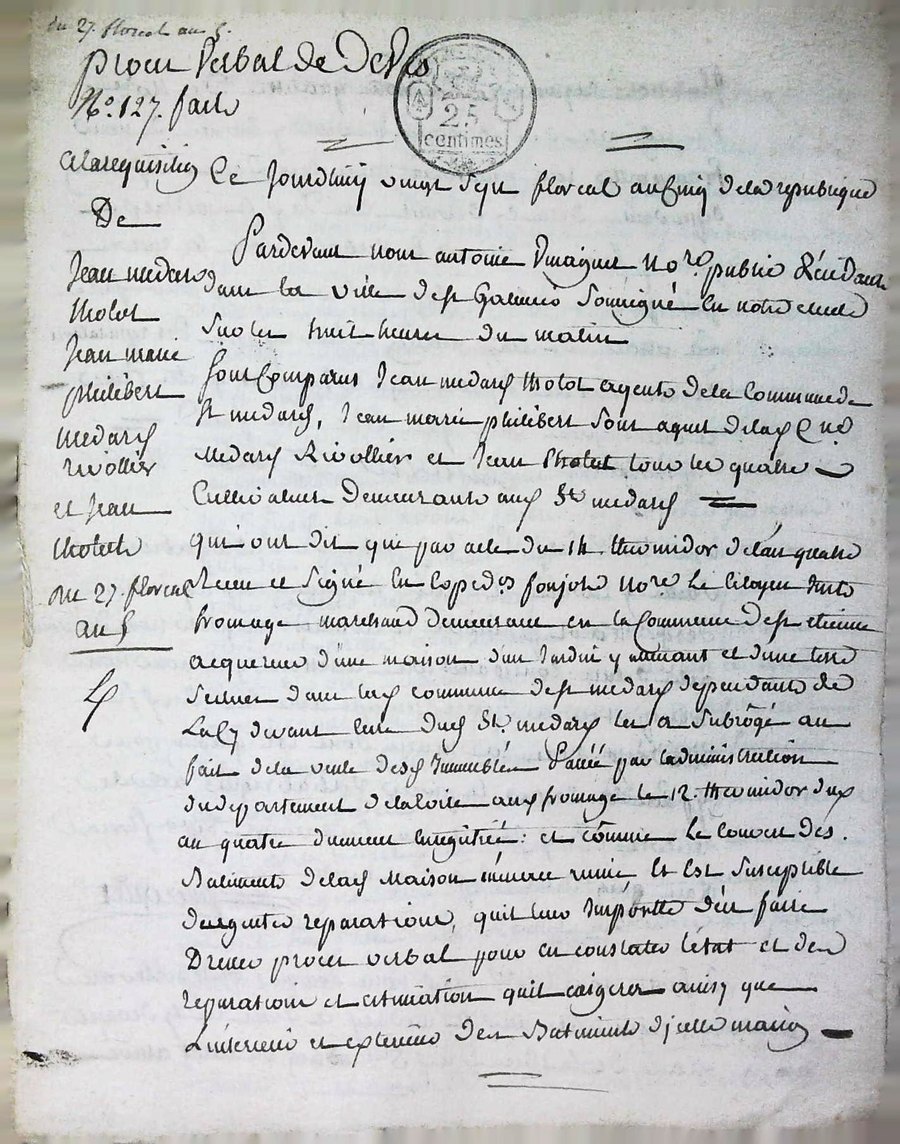 du 27. floreal an 5.
procès Verbal de Devis
No. 127. faite
25
centimes
alarequisition
De
Jean medard
tholot
Jean marie
philibert
medard
rivollier
et Jean
tholot
du 27. floreal
an 5
Ce Jourdhuy vingt sept floreal an cinq delarepublique
Pardevant nous antoine nore. public Residant
dans la ville de st Galmier soussigné En notre etude
sur les huit heures du matin
sont Comparus Jean medard tholot agent dela Commune de
st medard, Jean marie philibert
medard Rivollier et Jean tholot tous les quatre
Cultivateurs Demeurants aud St. medard
qui ont dit que par acte du 14. thermidor de lan quatre
recu et signé nore. le Citoyen
fromage marchand demeurant en la Commune de st etienne
acquereur dune maison dun Jardin y attenant et dune terre
situés dans lad commune de st medard dependants de
La Cy devant Cure dud St. medard les a subrogé au
fait de la vente desd Immeubles Passée par ladministration
du departement dela loire aud fromage le 12. thermidor dud
an quatre dument Enregistrée: et comme le couvert des
Batiments delad Maison menace ruine Et Est Susceptible
durgentes reparations, quil leur Importe den faire
Dresser procès verbal pour en constater létat et des
reparations et estimation quil exigera ainsy que
Linterieur et exterieur des Batiments dycelle maison